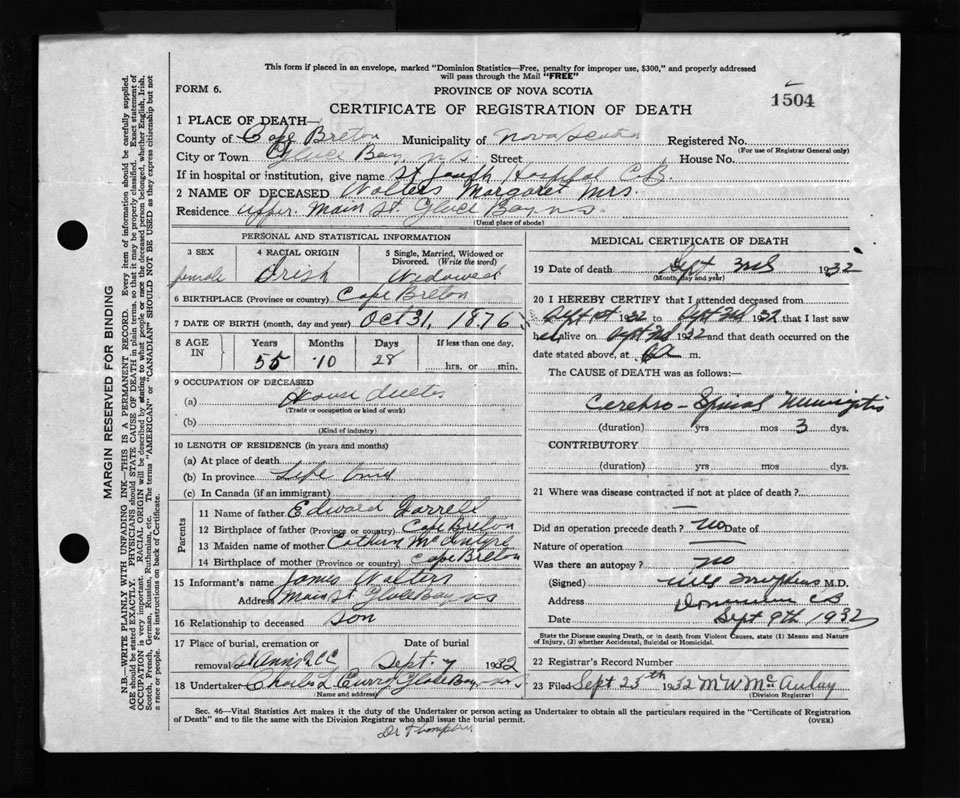 This form if placed in an envelope, marked "Dominion Statistics—Free, penalty for improper use, $300," and properly addressed
will pass through the Mail "FREE"
FORM 6.
PROVINCE OF NOVA SCOTIA
1504
CERTIFICATE OF REGISTRATION OF DEATH
1 PLACE OF DEATH—
County of Cape Breton Municipality of Nova Scotia Registered No.
(For use of Registrar General only)
City or Town Glace Bay N S Street House No.
If in hospital or institution, give name St Joseph Hospital C B
2 NAME OF DECEASED Walters Margaret Mrs.
Residence Upper Main St. Glace Bay N S
(Usual place of abode)
PERSONAL AND STATISTICAL INFORMATION
3 SEX 4 RACIAL ORIGIN 5 Single, Married, Widowed or Divorced. (Write the word)
female Irish Widowed
6 BIRTHPLACE (Province or country) Cape Breton
7 DATE OF BIRTH (month, day and year) Oct 31, 1876
8 AGE IN Years Months Days If less than one day,
55 10 28 hrs. or min.
9 OCCUPATION OF DECEASED
(a) House duties
(Trade or occupation or kind of work)
(b)
(Kind of industry)
10 LENGTH OF RESIDENCE (in years and months)
(a) At place of death
(b) In province Life time
(c) In Canada (if an immigrant)
Parents
11 Name of father Edward Farrell
12 Birthplace of father (Province or country) Cape Breton
13 Maiden name of mother Cathern McIntyre
14 Birthplace of mother (Province or country) Cape Breton
15 Informant's name James Walters
Address Main St Glace Bay N S
16 Relationship to deceased Son
17 Place of burial, cremation or Date of burial
removal St Anns Sept. 7 1932
18 Undertaker Charles L Curry Glace Bay N S
(Name and address)
MEDICAL CERTIFICATE OF DEATH
19 Date of death Sept 1932
(Month, day and year)
20 I HEREBY CERTIFY that I attended deceased from
Sept 1st 1932 to Sept 1932 that I last saw
her alive on Sept 1932 and that death occurred on the
date stated above, at m.
The CAUSE of DEATH was as follows:—
Cerebro-Spinal Meningitis
(duration) yrs mos 3 dys.
CONTRIBUTORY
(duration) yrs mos dys.
21 Where was disease contracted if not at place of death?
Did an operation precede death? No Date of
Nature of operation
Was there an autopsy? no
(Signed) M.D.
Address Dominion CB
Date Sept 9th 1932
State the Disease causing Death, or in death from Violent Causes, state (1) Means and Nature
of Injury, (2) whether Accidental, Suicidal or Homicidal.
22 Registrar's Record Number
23 Filed Sept 25th 1932 M W McAulay
(Division Registrar)
Sec. 46—Vital Statistics Act makes it the duty of the Undertaker or person acting as Undertaker to obtain all the particulars required in the "Certificate of Registration
of Death" and to file the same with the Division Registrar who shall issue the burial permit.
(OVER)
Dr Thompson
MARGIN RESERVED FOR BINDING
N.B.—WRITE PLAINLY WITH UNFADING INK—THIS IS A PERMANENT RECORD. Every item of information should be carefully supplied.
AGE should be stated EXACTLY. PHYSICIANS should STATE CAUSE OF DEATH in plain terms, so that it may be properly classified. Exact statement of
OCCUPATION is very important. RACIAL ORIGIN will be described by stating to what people or race deceased person belonged, whether English, Irish,
Scotch, French, German, Russian, Ruthenian, etc. The terms "AMERICAN" or "CANADIAN" SHOULD NOT BE USED as they express citizenship but not
a race or people. Fee instructions on back of Certificate.